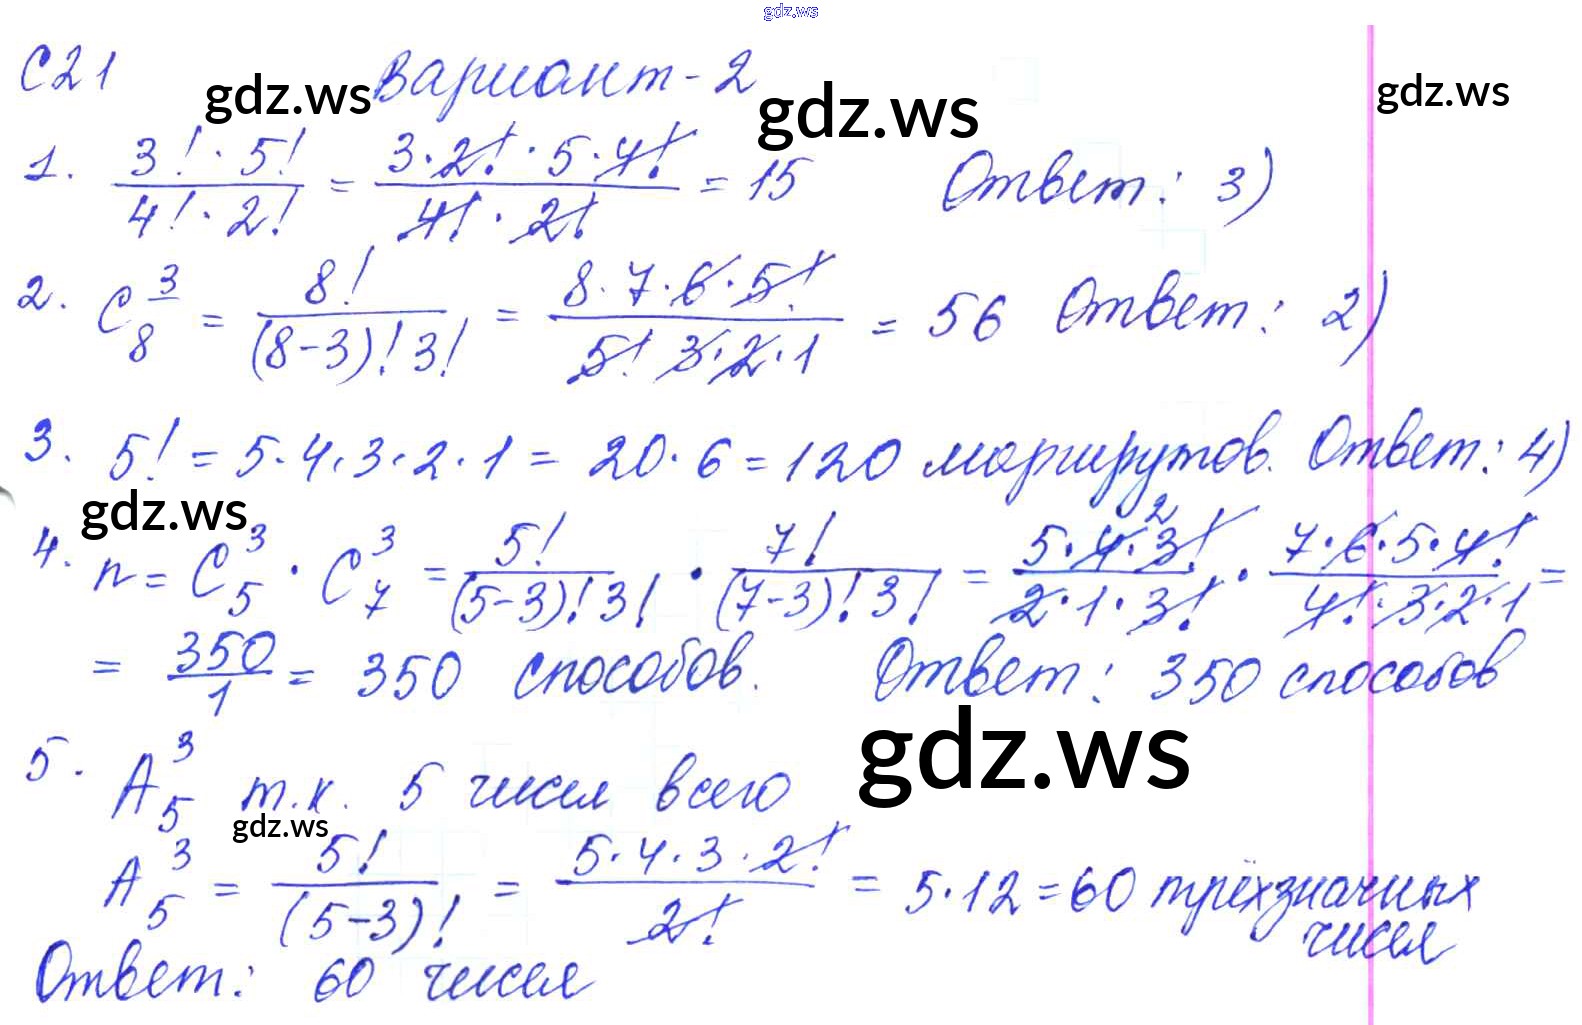 gdz.ws
С21 Вариант-2
gdz.ws gdz.ws gdz.ws
1. 3!·5! / 4!·2! = 3·2!·5·4! / 4!·2! = 15 Ответ: 3)
2. C₈³ = 8! / (8-3)!3! = 8·7·6·5! / 5! 3·2·1 = 56 Ответ: 2)
3. 5! = 5·4·3·2·1 = 20·6 = 120 маршрутов. Ответ: 4)
gdz.ws
4. n = C₅³ · C₇³ = 5! / (5-3)!3! · 7! / (7-3)!3! = 5·4²·3! / 2·1·3! · 7·6·5·4! / 4!·3·2·1 =
= 350 / 1 = 350 способов. Ответ: 350 способов
gdz.ws
5. A₅³ т.к. 5 чисел всего
gdz.ws
A₅³ = 5! / (5-3)! = 5·4·3·2! / 2! = 5·12 = 60 трёхзначных
чисел
Ответ: 60 чисел